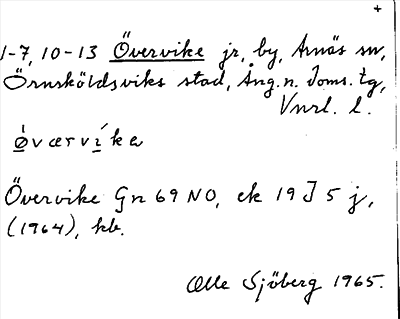 +
1-7, 10-13 Övervike jr, by, Arnäs sn,
Örnsköldsviks stad, Ång. n. Doms. tg,
Vnrl. l.
ǿværvíka
Övervike Gn 69 NO, ek 19 J 5 j,
(1964), hb.
Olle Sjöberg 1965.